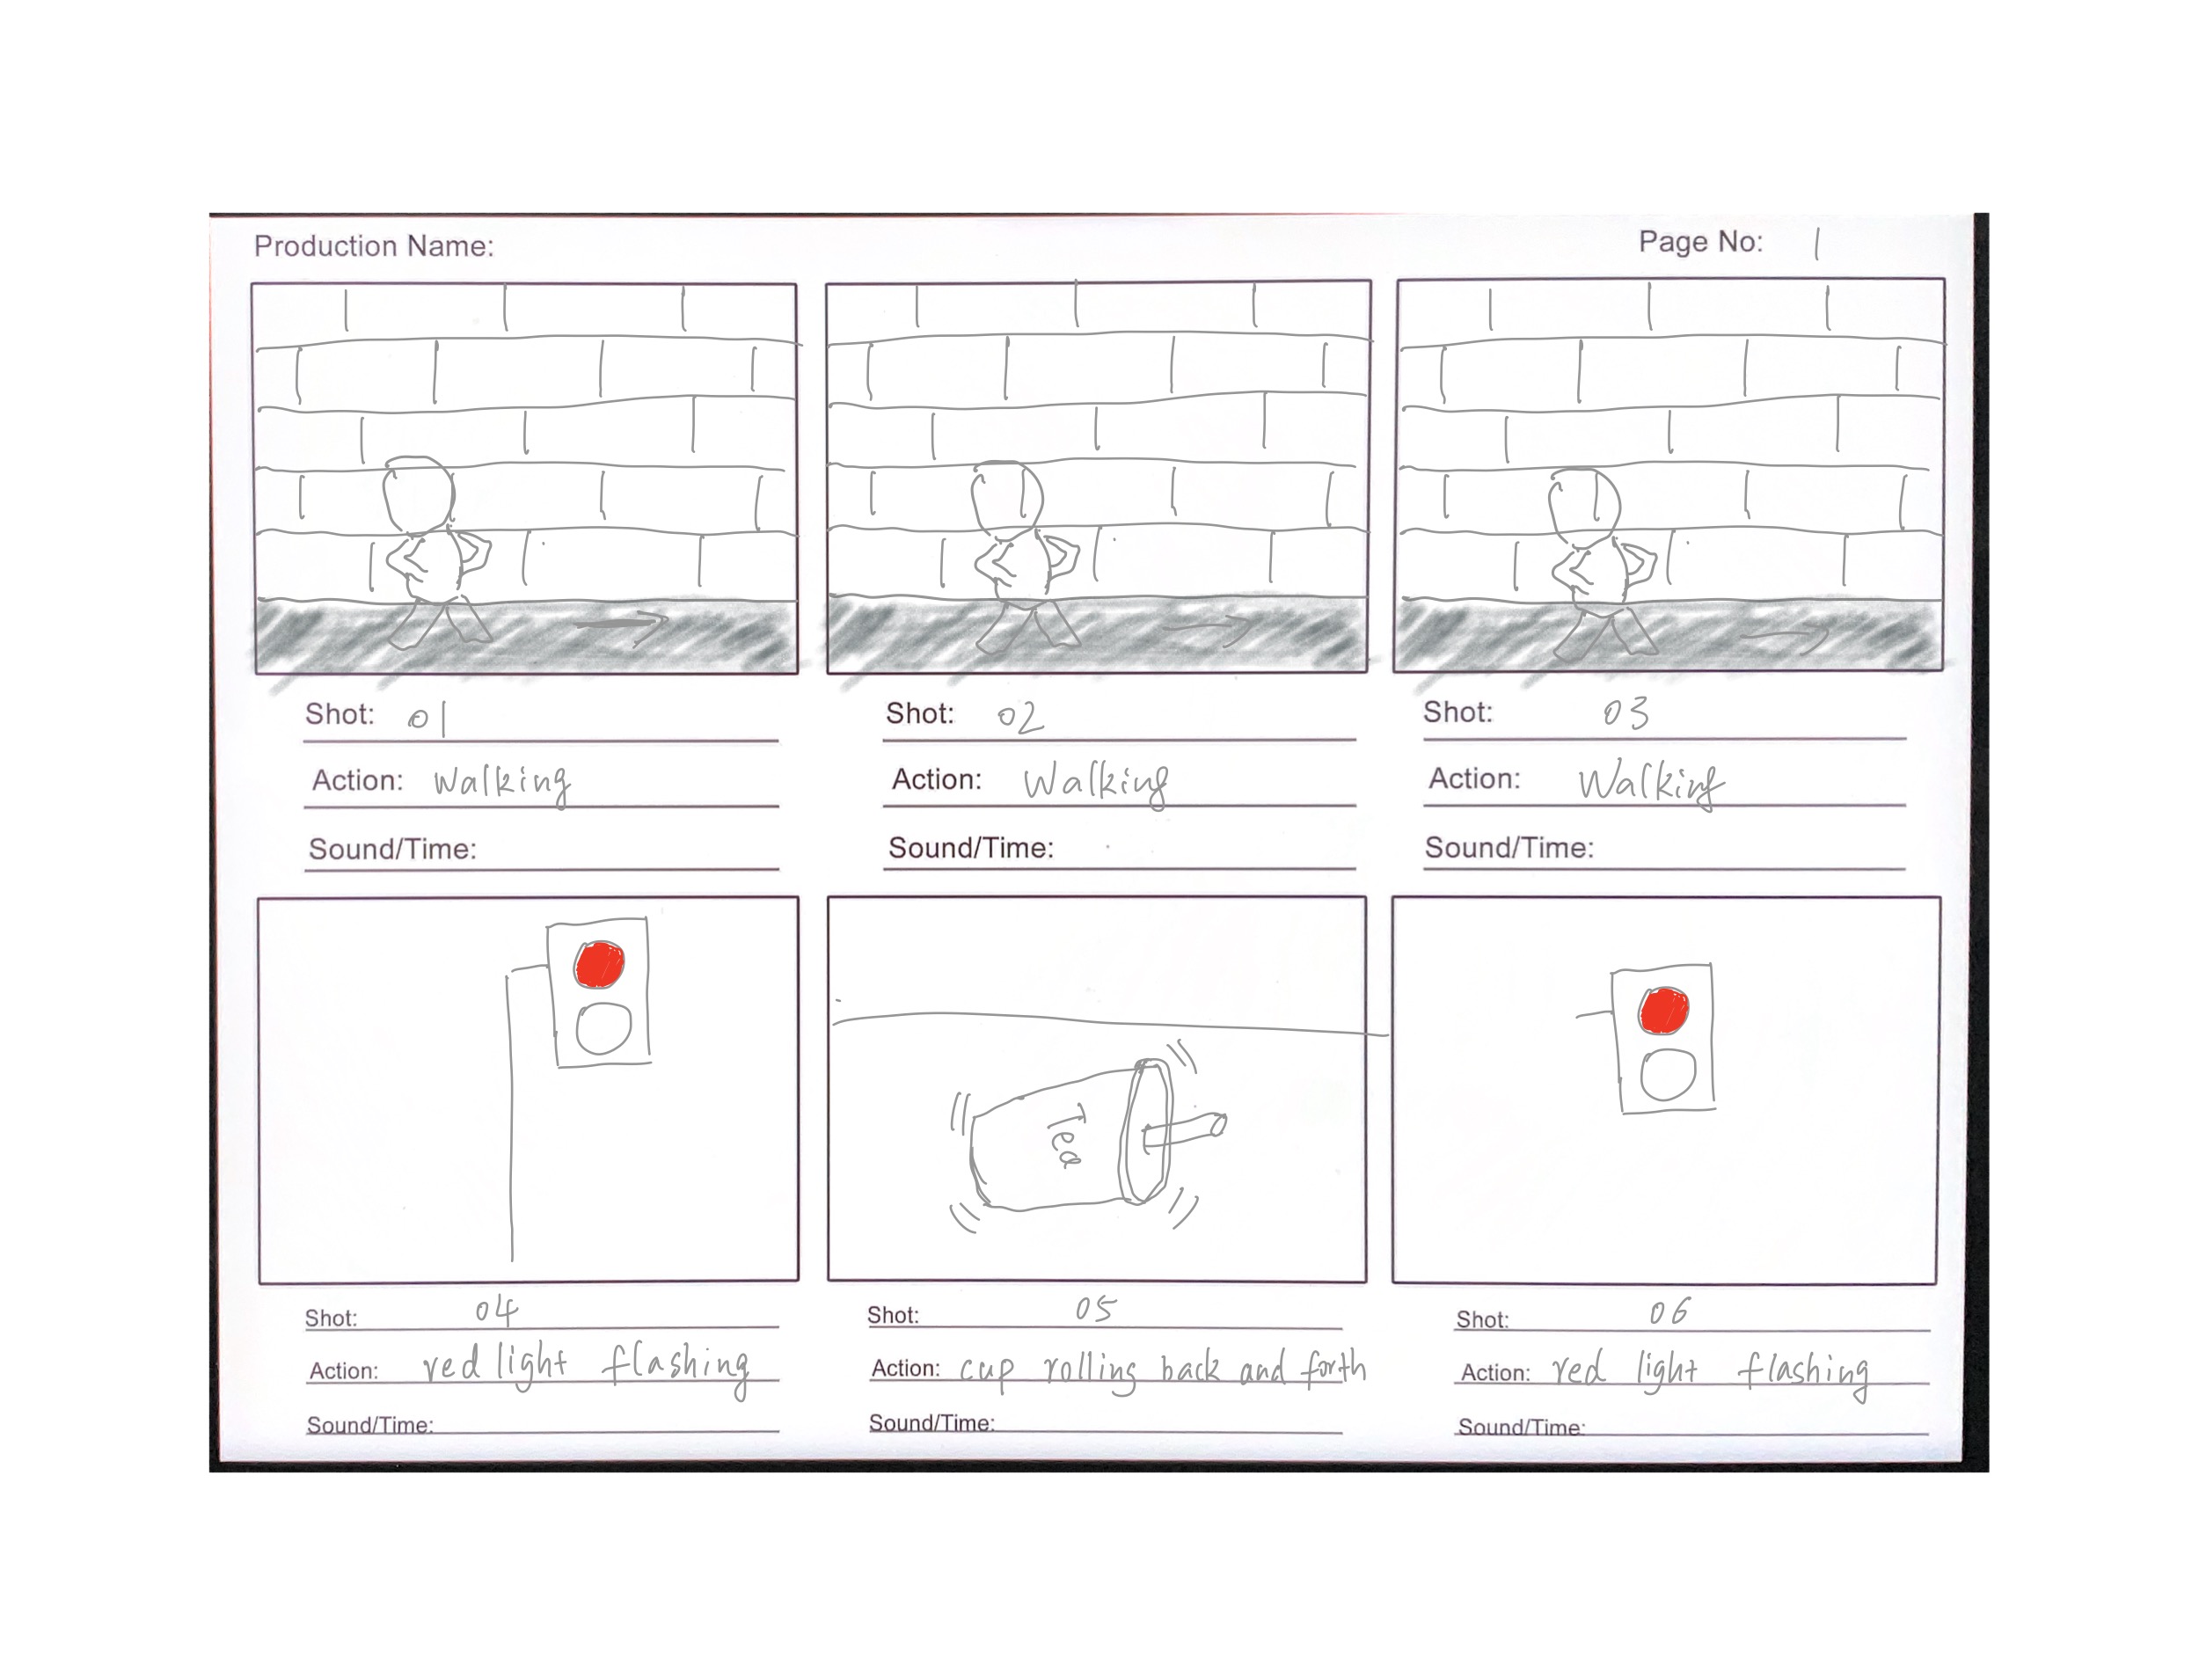 Production Name:
Page No: 1
Shot: 01
Action: Walking
Sound/Time:
Shot: 02
Action: Walking
Sound/Time:
Shot: 03
Action: Walking
Sound/Time:
Tea
Shot: 04
Action: red light flashing
Sound/Time:
Shot: 05
Action: cup rolling back and forth
Sound/Time:
Shot: 06
Action: red light flashing
Sound/Time: